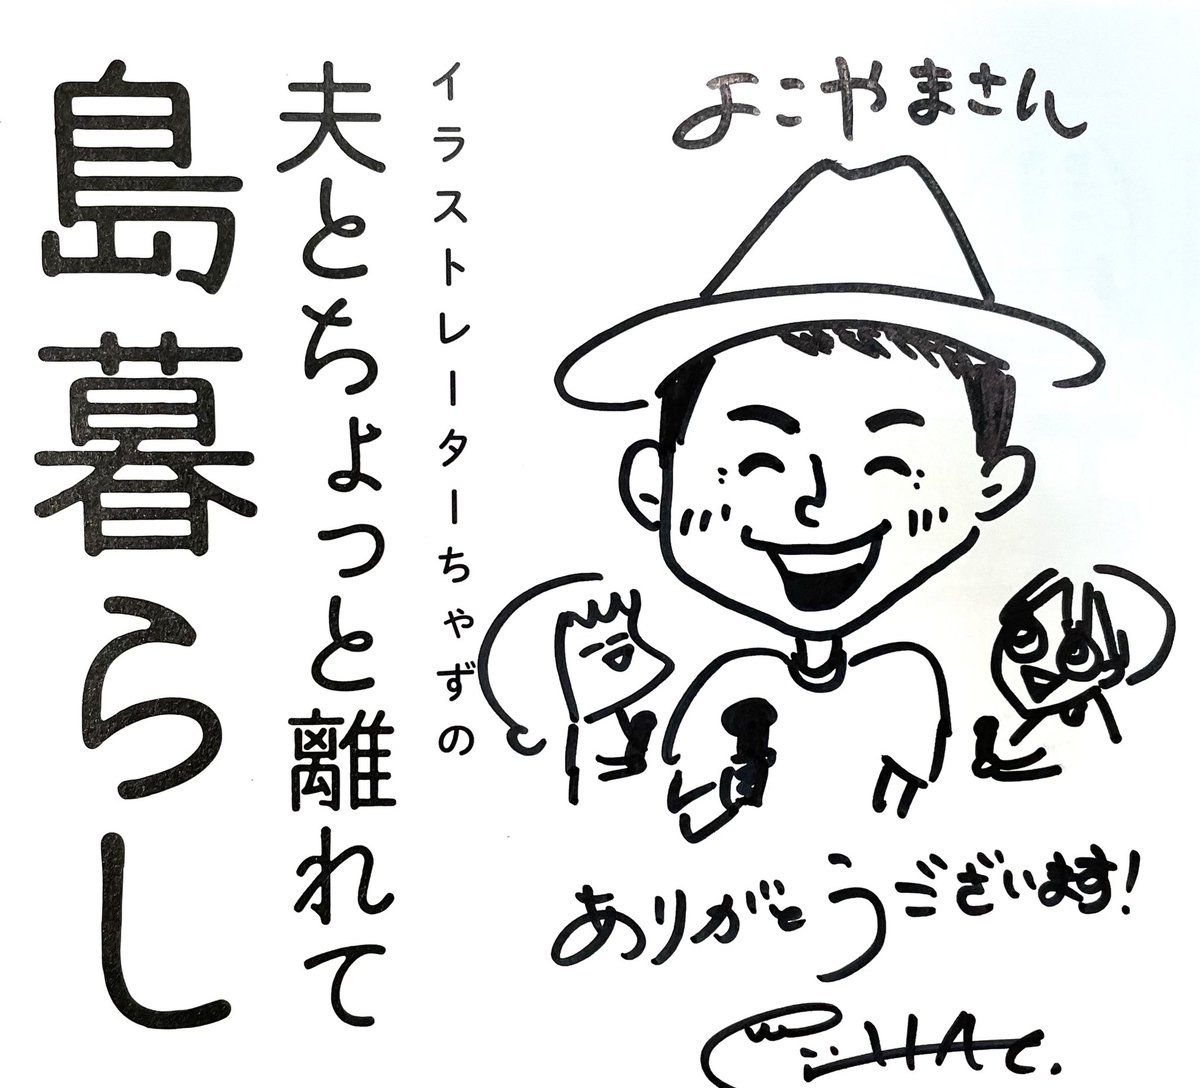 よこやまさん
イラストレーターちゃずの
夫とちょっと離れて
島暮らし
ありがとうございます!